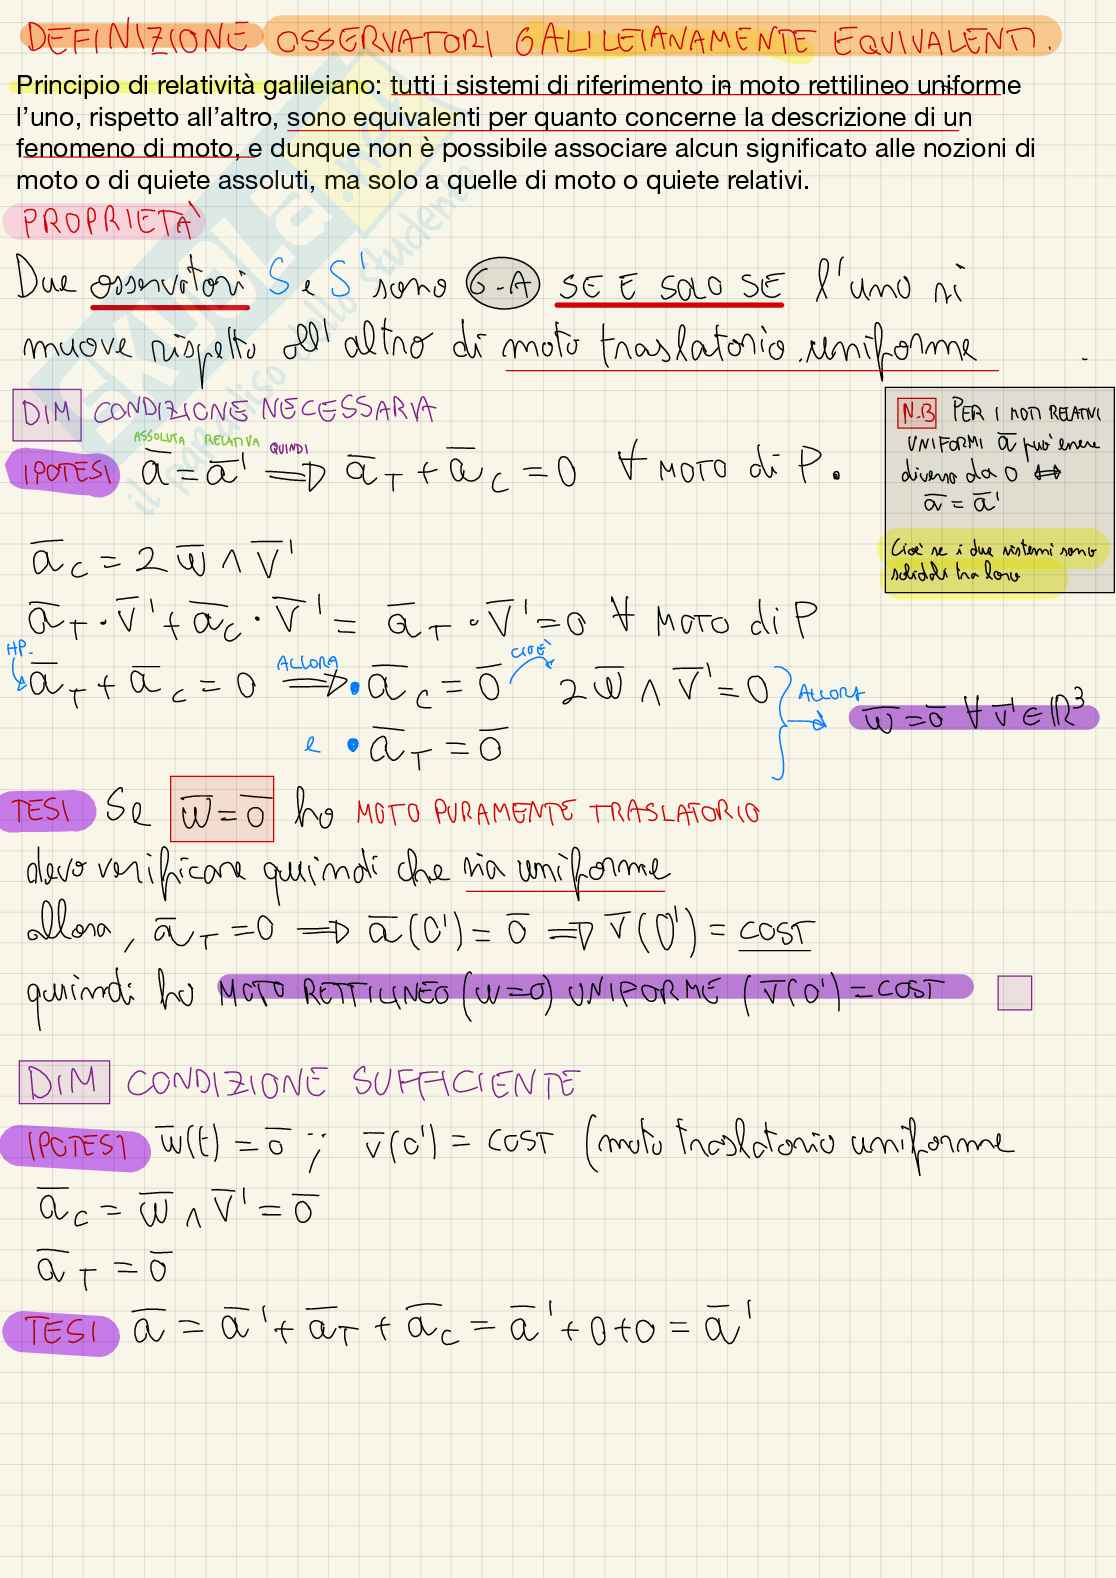 DEFINIZIONE OSSERVATORI GALILEIANAMENTE EQUIVALENTI.
Principio di relatività galileiano: tutti i sistemi di riferimento in moto rettilineo uniforme
l'uno, rispetto all'altro, sono equivalenti per quanto concerne la descrizione di un
fenomeno di moto, e dunque non è possibile associare alcun significato alle nozioni di
moto o di quiete assoluti, ma solo a quelle di moto o quiete relativi.
PROPRIETA'
Due osservatori S e S' sono G-A SE E SOLO SE l'uno si
muove rispetto all'altro di moto traslatorio uniforme
DIM CONDIZIONE NECESSARIA
ASSOLUTA RELATIVA QUINDI
IPOTESI a̅ = a̅' ⟹ a̅_T + a̅_C = 0 ∀ MOTO di P.
N.B PER I MOTI RELATIVI
UNIFORMI a̅ può essere
diverso da 0 ⟺
a̅ = a̅'
Cioè se i due sistemi sono
solidali tra loro
a̅_C = 2 w̅ ∧ v̅'
a̅_T · v̅' + a̅_C · v̅' = a̅_T · v̅' = 0 ∀ MOTO di P
HP. ALLORA CIOÈ
a̅_T + a̅_C = 0 ⟹ • a̅_C = 0̅ 2 w̅ ∧ v̅' = 0 ALLORA w̅ = 0̅ ∀ v̅' ∈ ℝ³
e • a̅_T = 0̅
TESI Se w̅ = 0̅ ho MOTO PURAMENTE TRASLATORIO
devo verificare quindi che sia uniforme
allora, a̅_T = 0 ⟹ a̅(O') = 0̅ ⟹ v̅(O') = COST
quindi ho MOTO RETTILINEO (w=0) UNIFORME (v̅(O') = COST
DIM CONDIZIONE SUFFICIENTE
IPOTESI w̅(t) = 0̅ ; v̅(O') = COST (moto traslatorio uniforme
a̅_C = w̅ ∧ v̅' = 0̅
a̅_T = 0̅
TESI a̅ = a̅' + a̅_T + a̅_C = a̅' + 0 + 0 = a̅'